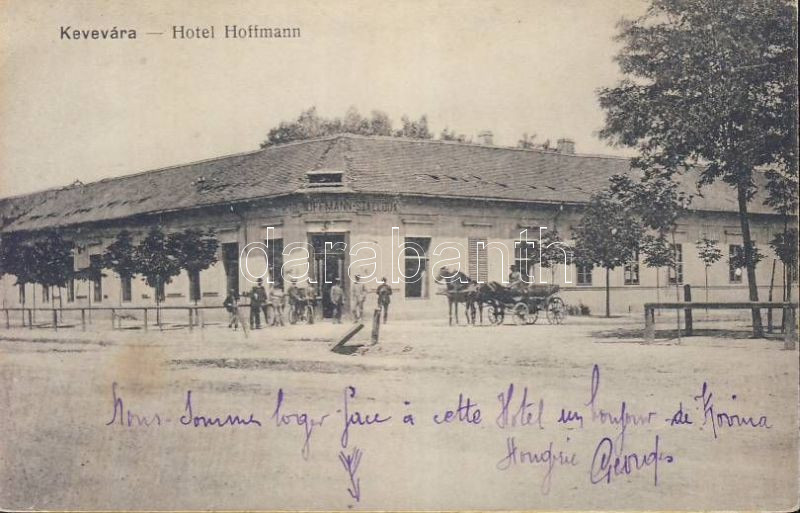 Kevevára — Hotel Hoffmann
HOFFMANN-SZÁLLODA
darabanth
Nous sommes loger face à cette Hotel un bonjour de Kovina
Hongrie Georges